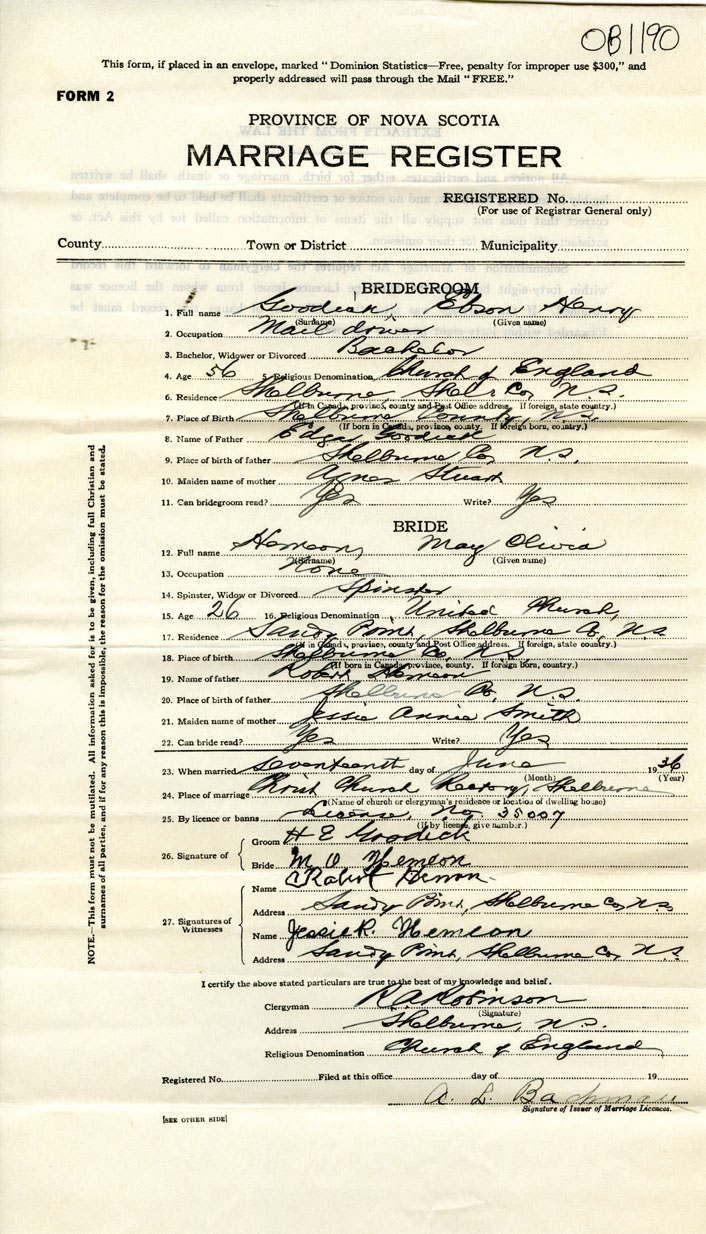 OB1190
This form, if placed in an envelope, marked "Dominion Statistics—Free, penalty for improper use $300," and
properly addressed will pass through the Mail "FREE."
FORM 2
PROVINCE OF NOVA SCOTIA
MARRIAGE REGISTER
REGISTERED No.
(For use of Registrar General only)
County Town or District Municipality
BRIDEGROOM
1. Full name Goodick Ebson Henry
(Surname) (Given name)
2. Occupation Mail driver
3. Bachelor, Widower or Divorced Bachelor
4. Age 56 5. Religious Denomination Church of England
6. Residence Shelburne Shel. Co, N.S.
(If in Canada, province, county and Post Office address. If foreign, state country.)
7. Place of Birth Shelburne County, N.S.
(If born in Canada, province, county. If foreign born, country.)
8. Name of Father Edgar Goodick
9. Place of birth of father Shelburne Co, N.S.
10. Maiden name of mother Agnes Stuart
11. Can bridegroom read? Yes Write? Yes
BRIDE
12. Full name Hemeon, May Olivia
(Surname) (Given name)
13. Occupation None
14. Spinster, Widow or Divorced Spinster
15. Age 26 16. Religious Denomination United Church,
17. Residence Sandy Point, Shelburne Co, N.S.
(If in Canada, province, county and Post Office address. If foreign, state country.)
18. Place of birth Shelburne Co, N.S.
(If born in Canada province, county. If foreign born, country.)
19. Name of father Robert Hemeon
20. Place of birth of father Shelburne Co, N.S.
21. Maiden name of mother Jessie Annie Smith
22. Can bride read? Yes Write? Yes
23. When married seventeenth day of June 1936
(Month) (Year)
24. Place of marriage Christ Church Rectory, Shelburne
(Name of church or clergyman's residence or location of dwelling house)
25. By licence or banns License, No 35007
(If by licence, give number.)
26. Signature of Groom H E Goodick
Bride M. O Hemeon
27. Signatures of Witnesses
Name Robert
Address Sandy Point, Shelburne Co, N.S.
Name Jessie R. Hemeon
Address Sandy Point, Shelburne Co, N.S.
I certify the above stated particulars are true to the best of my knowledge and belief.
Clergyman Robinson
(Signature)
Address Shelburne, N.S.
Religious Denomination Church of England
Registered No. Filed at this office day of 19
A. L.
Signature of Issuer of Marriage Licences.
[SEE OTHER SIDE]
NOTE.—This form must not be mutilated. All information asked for is to be given, including full Christian and
surnames of all parties, and if for any reason this is impossible, the reason for the omission must be stated.